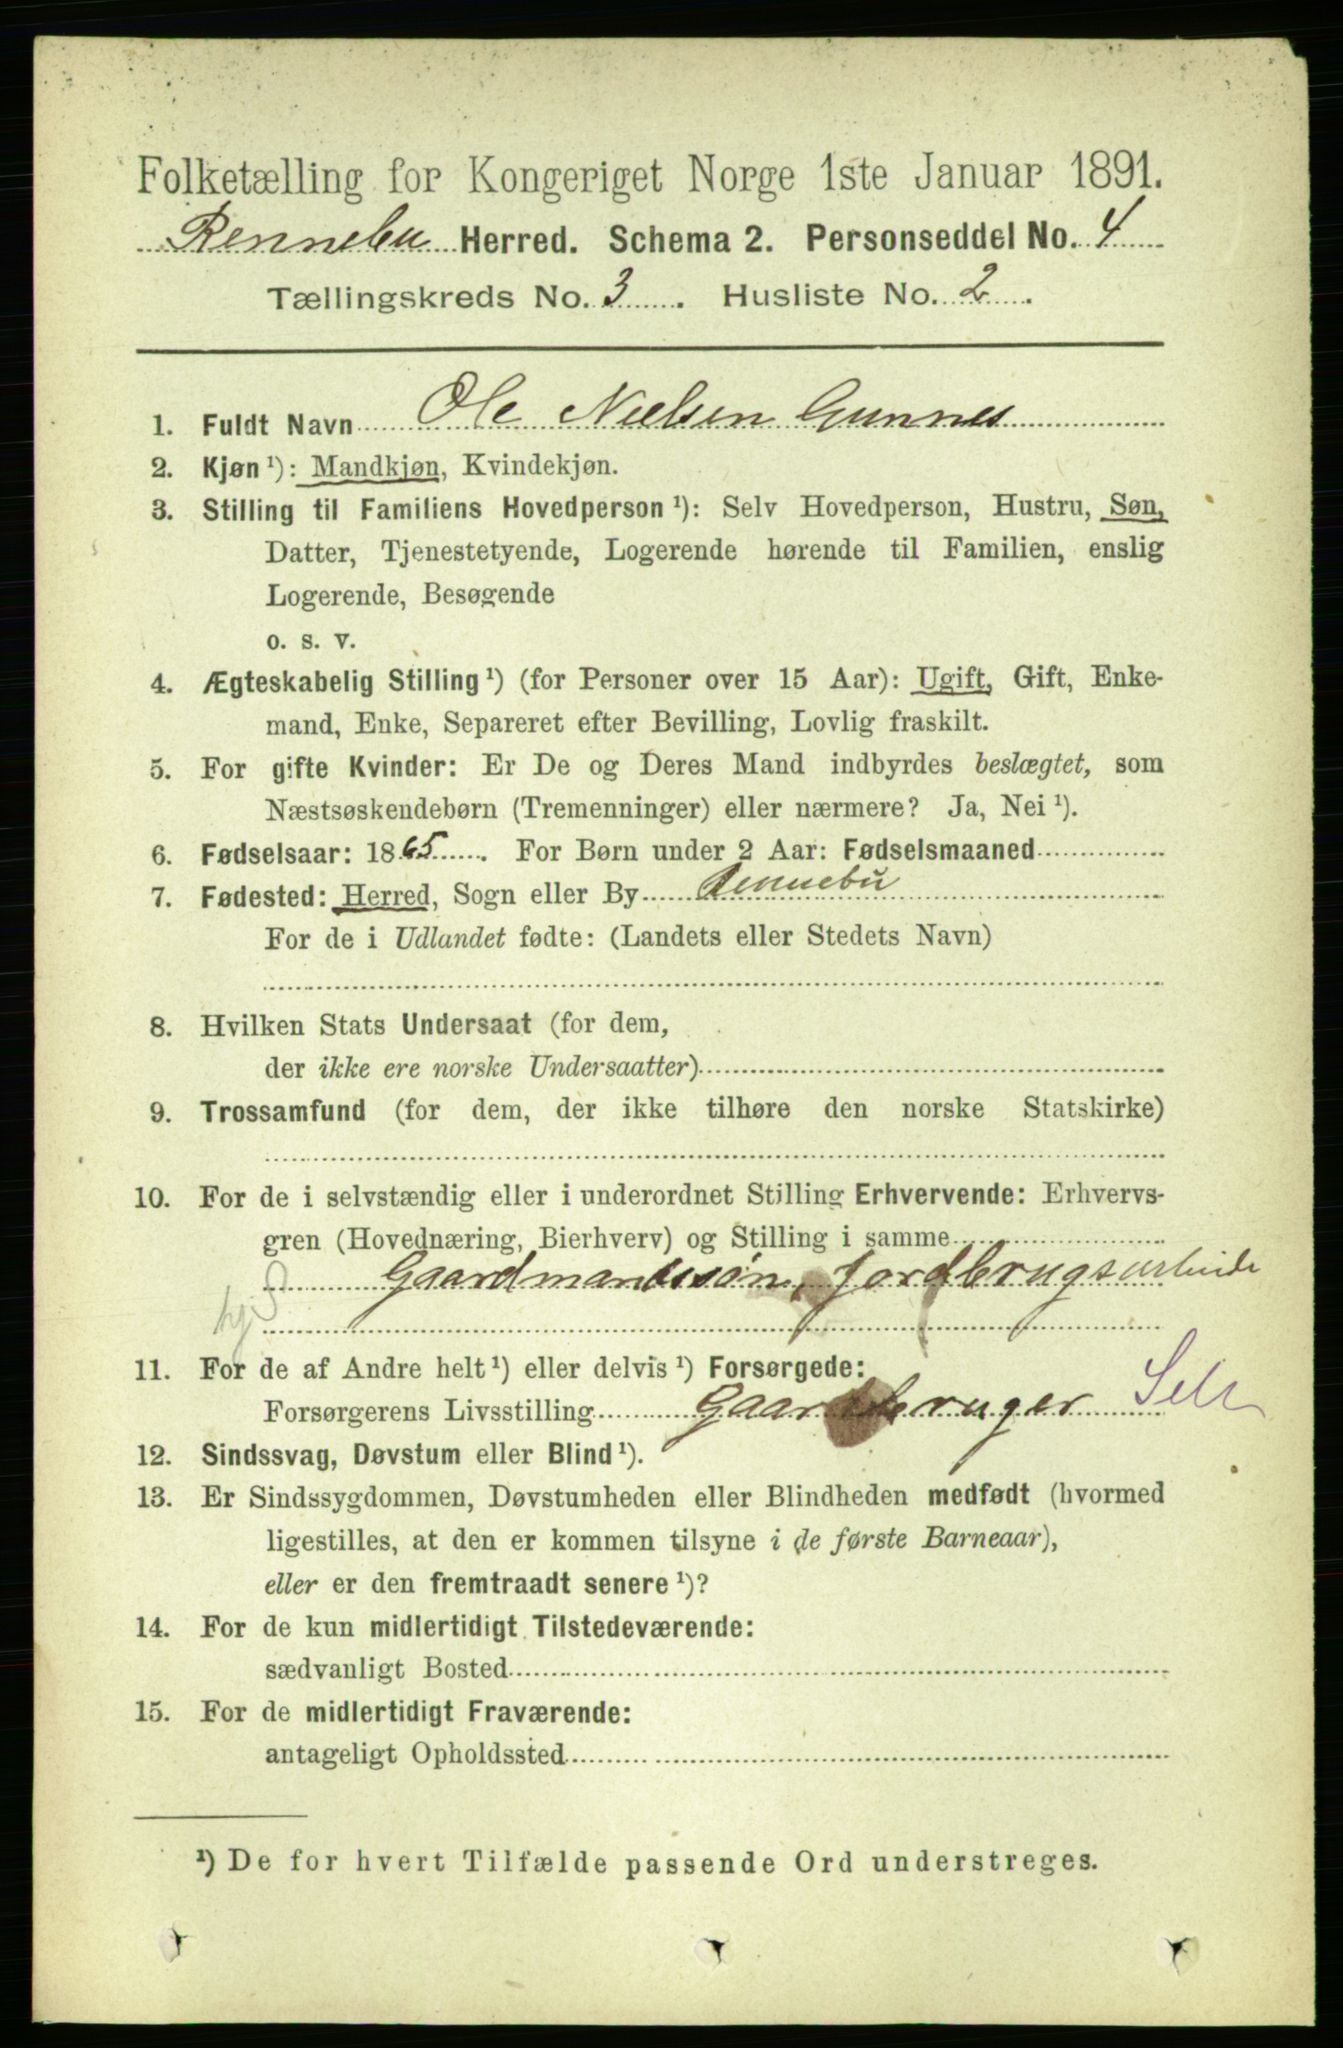 Folketælling for Kongeriget Norge 1ste Januar 1891.
Rennebu Herred. Schema 2. Personseddel No. 4
Tællingskreds No. 3. Husliste No. 2.
1. Fuldt Navn Ole Nielsen Gunnes
2. Kjøn ¹): Mandkjøn, Kvindekjøn.
3. Stilling til Familiens Hovedperson ¹): Selv Hovedperson, Hustru, Søn,
Datter, Tjenestetyende, Logerende hørende til Familien, enslig
Logerende, Besøgende
o. s. v.
4. Ægteskabelig Stilling ¹) (for Personer over 15 Aar): Ugift, Gift, Enke-
mand, Enke, Separeret efter Bevilling, Lovlig fraskilt.
5. For gifte Kvinder: Er De og Deres Mand indbyrdes beslægtet, som
Næstsøskendebørn (Tremenninger) eller nærmere? Ja, Nei ¹).
6. Fødselsaar: 1865. For Børn under 2 Aar: Fødselsmaaned
7. Fødested: Herred, Sogn eller By Rennebu
For de i Udlandet fødte: (Landets eller Stedets Navn)
8. Hvilken Stats Undersaat (for dem,
der ikke ere norske Undersaatter)
9. Trossamfund (for dem, der ikke tilhøre den norske Statskirke)
10. For de i selvstændig eller i underordnet Stilling Erhvervende: Erhvervs-
gren (Hovednæring, Bierhverv) og Stilling i samme
Gaardmandssøn, Jordbrugsarbeide
11. For de af Andre helt ¹) eller delvis ¹) Forsørgede:
Forsørgerens Livsstilling Gaardbruger Selv
12. Sindssvag, Døvstum eller Blind ¹).
13. Er Sindssygdommen, Døvstumheden eller Blindheden medfødt (hvormed
ligestilles, at den er kommen tilsyne i de første Barneaar),
eller er den fremtraadt senere ¹)?
14. For de kun midlertidigt Tilstedeværende:
sædvanligt Bosted
15. For de midlertidigt Fraværende:
antageligt Opholdssted
¹) De for hvert Tilfælde passende Ord understreges.